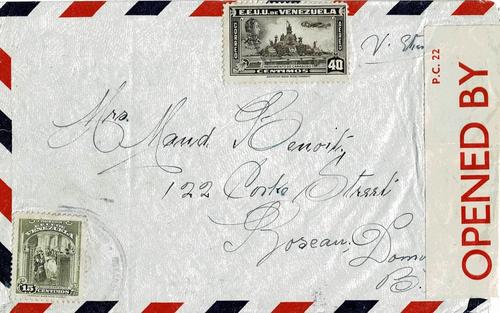 E.E.U.U. DE VENEZUELA
CORREO
AEREO
CENTIMOS 40
P.C. 22
OPENED BY
Mrs. Maud Benoit,
122 Cork Street
Roseau, Dom
B.
VENEZUELA
15 CENTIMOS